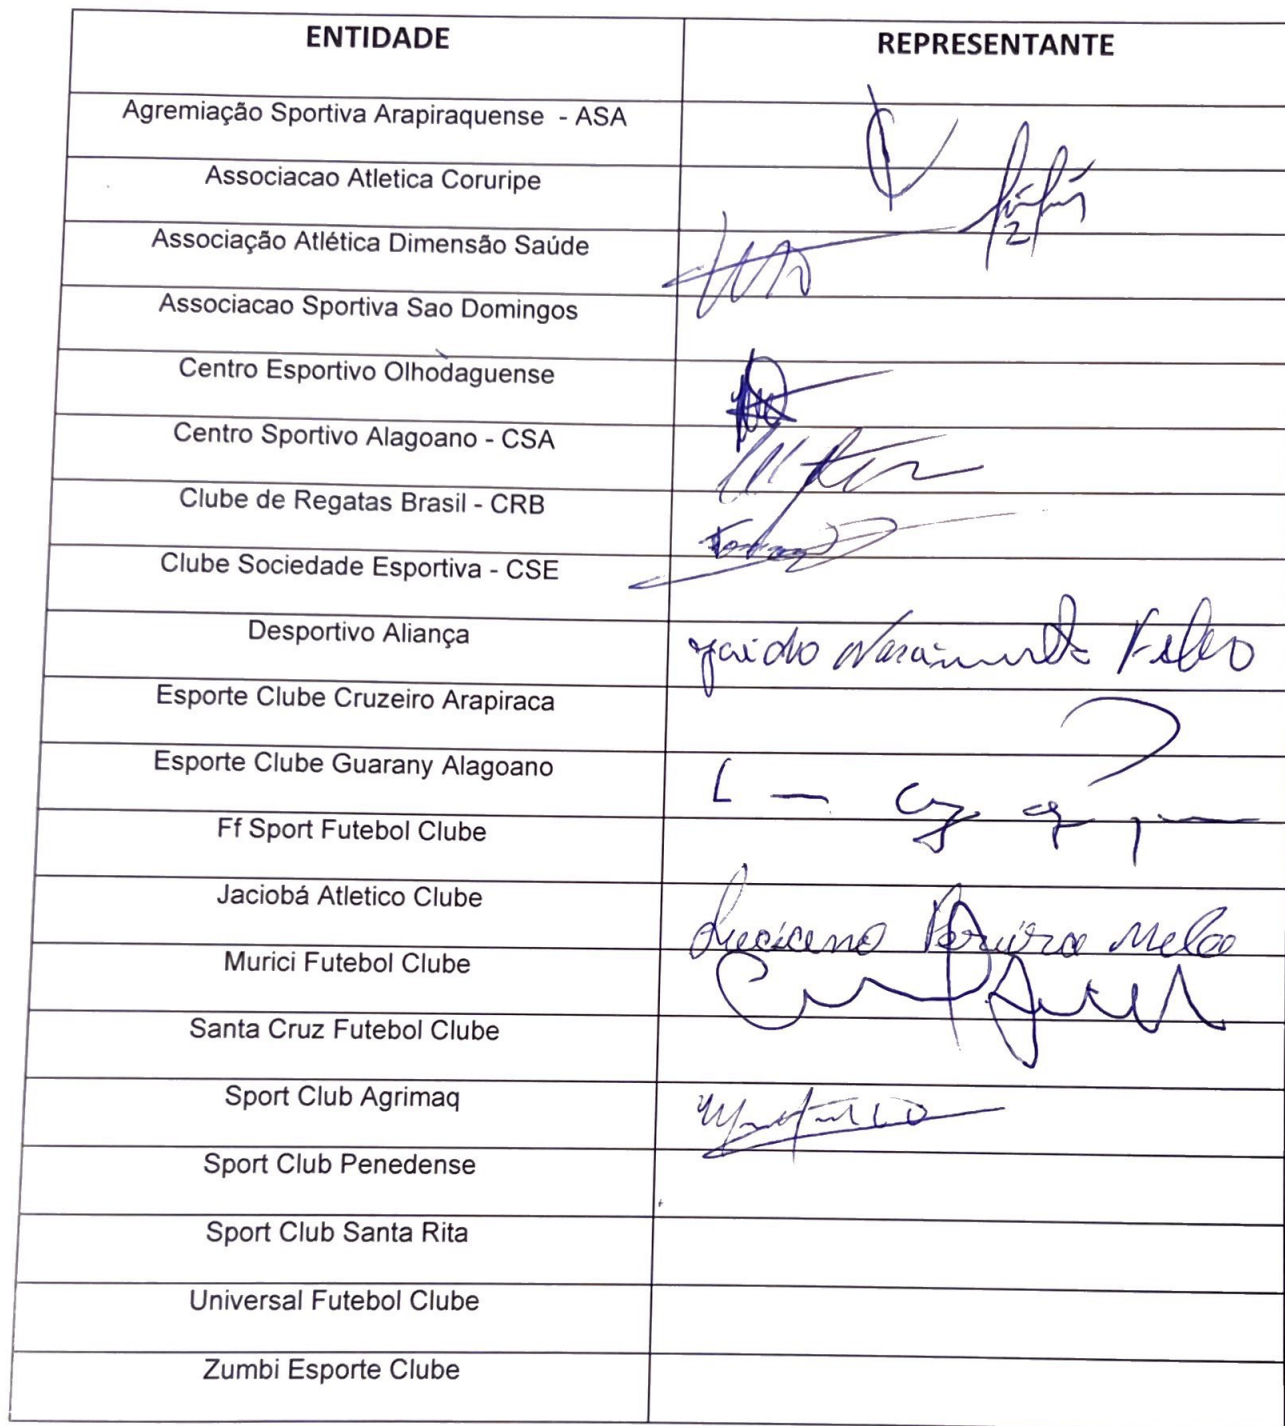 ENTIDADE REPRESENTANTE
Agremiação Sportiva Arapiraquense - ASA
Associacao Atletica Coruripe
Associação Atlética Dimensão Saúde
Associacao Sportiva Sao Domingos
Centro Esportivo Olhodaguense
Centro Sportivo Alagoano - CSA
Clube de Regatas Brasil - CRB
Clube Sociedade Esportiva - CSE
Desportivo Aliança
Esporte Clube Cruzeiro Arapiraca
Esporte Clube Guarany Alagoano
Ff Sport Futebol Clube
Jaciobá Atletico Clube Luciano Pereira Melo
Murici Futebol Clube
Santa Cruz Futebol Clube
Sport Club Agrimaq
Sport Club Penedense
Sport Club Santa Rita
Universal Futebol Clube
Zumbi Esporte Clube